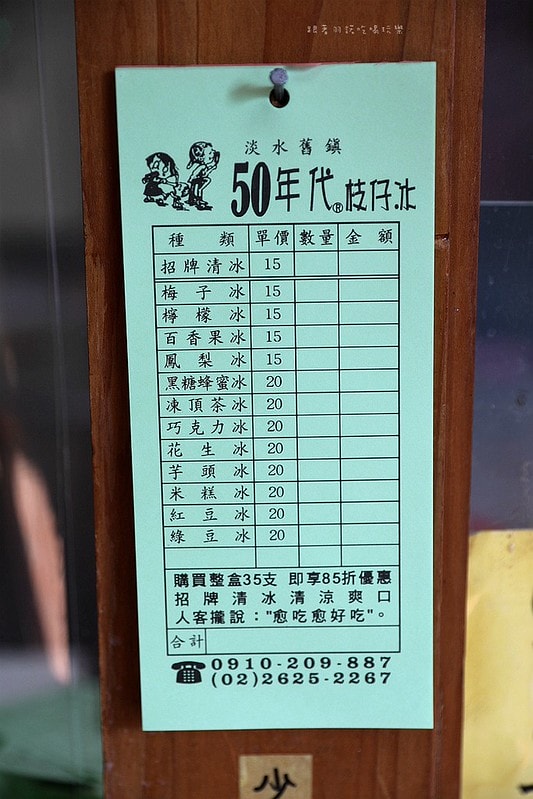 跟著羽諾吃喝玩樂
淡水舊鎮
50年代®枝仔冰
種類 單價 數量 金額
招牌清冰 15
梅子冰 15
檸檬冰 15
百香果冰 15
鳳梨冰 15
黑糖蜂蜜冰 20
凍頂茶冰 20
巧克力冰 20
花生冰 20
芋頭冰 20
米糕冰 20
紅豆冰 20
綠豆冰 20
購買整盒35支 即享85折優惠
招牌清冰清涼爽口
人客攏說："愈吃愈好吃"。
合計
0910-209-887
(02)2625-2267
少